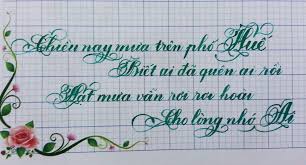 Chiều nay mưa trên phố Huế
Biết ai đã quên ai rồi
Hạt mưa vẫn rơi rơi hoài
Cho lòng nhớ Ai